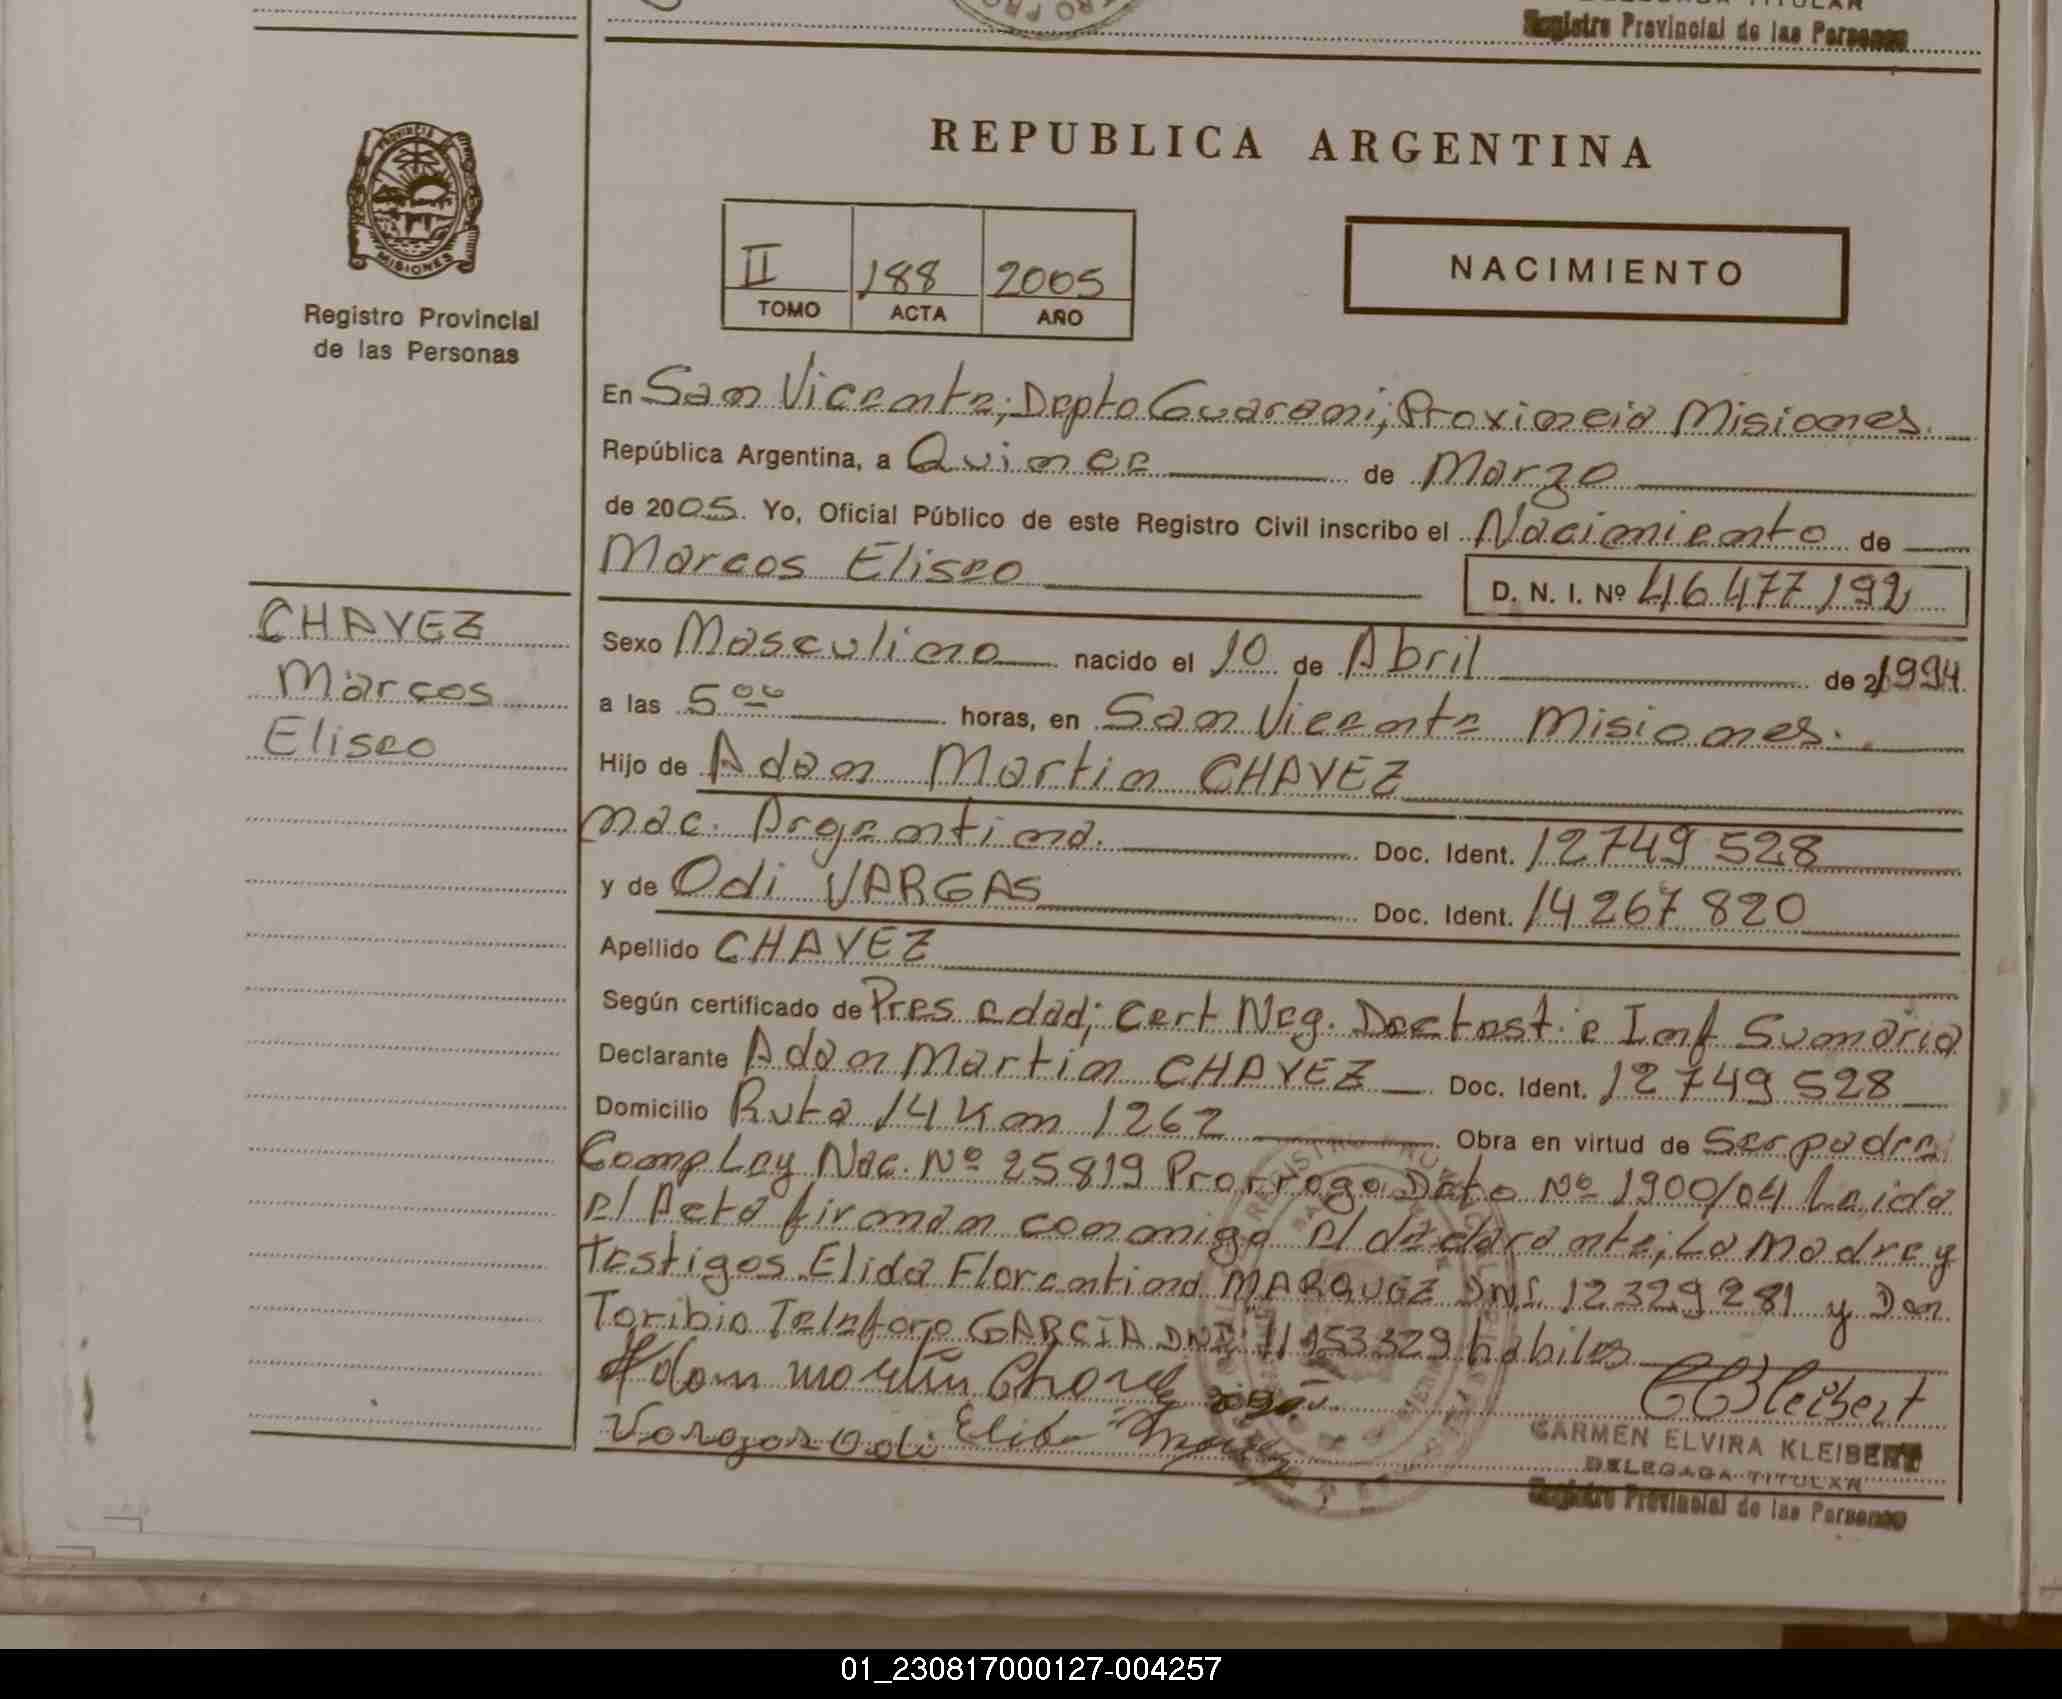 Registro Provincial de las Personas
REPUBLICA ARGENTINA
PROVINCIA
MISIONES
Registro Provincial
de las Personas
II 188 2005
TOMO ACTA AÑO
NACIMIENTO
En San Vicente; Depto Guarani; Provincia Misiones.
República Argentina, a Quince de Marzo
de 2005. Yo, Oficial Público de este Registro Civil inscribo el Nacimiento de
Marcos Eliseo
D. N. I. Nº 46.477.192
CHAVEZ
Marcos
Eliseo
Sexo Masculino nacido el 10 de Abril de 1994
a las 5 00 horas, en San Vicente Misiones.
Hijo de Adan Martin CHAVEZ
nac. Argentina. Doc. Ident. 12749 528
y de Odi VARGAS Doc. Ident. 14267820
Apellido CHAVEZ
Según certificado de Pres edad; Cert Neg. Dectest. e Inf Sumaria
Declarante Adan Martin CHAVEZ Doc. Ident. 12749528
Domicilio Ruta 14 Km 1262 Obra en virtud de Ser padre
Comp Ley Nac. Nº 25819 Prorroga Dcto Nº 1900/04 Leida
el Acta firman conmigo el declarante; La Madre y
Testigos Elida Florentina MARQUEZ DNI. 12329281 y Don
Toribio Telesforo GARCIA DNI 11153329 habiles
Adam Martin Chavez
CEKleibert
Vargas Odi Elida
CARMEN ELVIRA KLEIBERT
DELEGADA TITULAR
Registro Provincial de las Personas
01_230817000127-004257